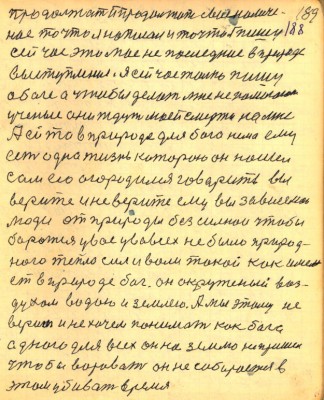 189
продолжат и продолжат мое намиче-
ное то что я написал и то что я пишу 188
сейчас это мое не последние в природе
выступления. я сейчас только пишу
о боге а чтобы делат мне не помогают
ученые они ждут моей смерти на мне
А ей то в природе для бога нема ему
ест одна жизнь которою он нашел
сам его огородимся говарить вы
верите и не верите ему вы зависемои
люди от природы без силнои чтобы
боротся у вас у во всех не было природ-
ного тепло сил и воли такой как имеем
ест в природе бог. он окруженый воз-
духом водою и землею. А мы этому не
верим и не хочем понимат как бога
одного для всех он на землю не пришел
чтобы воровать он не собирается в
этом убиват время